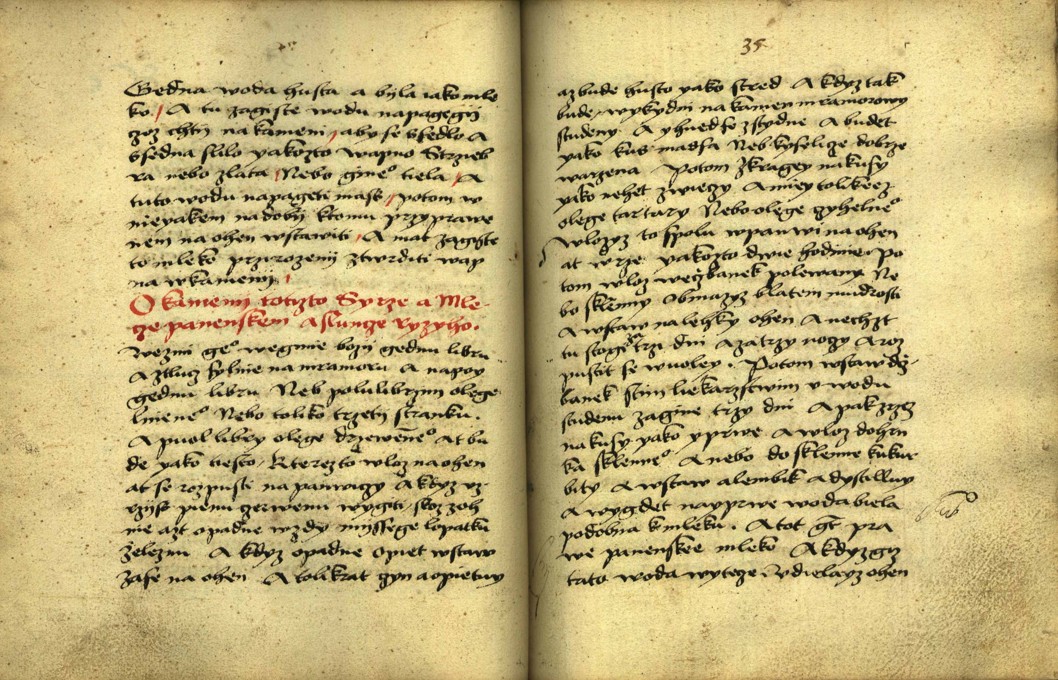 Gedna woda husta a byla iako mle
ko / A tu zagiste wodu napagegij
zoz chtij na kameni / aby se vsedlo A
vsedna slilo yakozto wapno Strzieb
ra nebo zlata / Nebo gineo tiela / A
tuto wodu napageti mass / potom w
nieyakem nadobij ktomu przyprawe
nem na ohen wstawiti / A mat zagiste
to mleko przirozenij ztwrditi wap
na w kamenij /
O kamenij totizto Syrze a Mle-
ze panenskem A slunze ryzyho.
Wezmi geo wegmie bozij gednu libru
A ztluc sylnie na mramoru A napoy
gednu libru Neb polu librzim olege
lneneo Nebo toliko trzetij stranku.
A puol libry olege drzeweneo At bu
de yako tiesto / Kterezto wloz na ohen
at se rozpusti na panwigy A kdyz vz-
rzijs pienu zerwenu wygiti skoz zoh
nie azt opadne wzdy mijssege lopatku
zeleznu A kdyz opadne opiet wstaw
zase na ohen A tolikrat gyn a opietuy
35
az bude husto yako stred A kdyz tak
bude / wyky dni na kamen mramorowy
studeny A yhned se zstydne A budet
yako kus massa Neb kyselize dobrze
warzena Potom zkragey na kusy
yako nehet zwiezy A miey tolikeez
olege tartary Nebo olege zyhelneo
wlozyz to spolu w panwi na ohen
at wrze yakozto dwie hodinie Po
tom wloz we zbanek polewany Ne
bo sklenny obmazyz blatem mudrosti
A wstaw na lehky ohen A nechzt
tu stogi trzi dni A za trzy nozy A roz
pustit se w uoley. Potom wstaw dz-
banek stim liekarzstwim v wodu
studenu zagine trzy dni A pak zrzez
na kusy yako y prwe A wloz do hrn
ka skleneo A nebo do sklenie kukur
bity A wstaw alembik A dystilluy
A wygdet nayprwe woda biela
podobna k mleku. A tot gt pra
we panenskee mleko A kdyz giz
tato woda wyteze vdielayz ohen